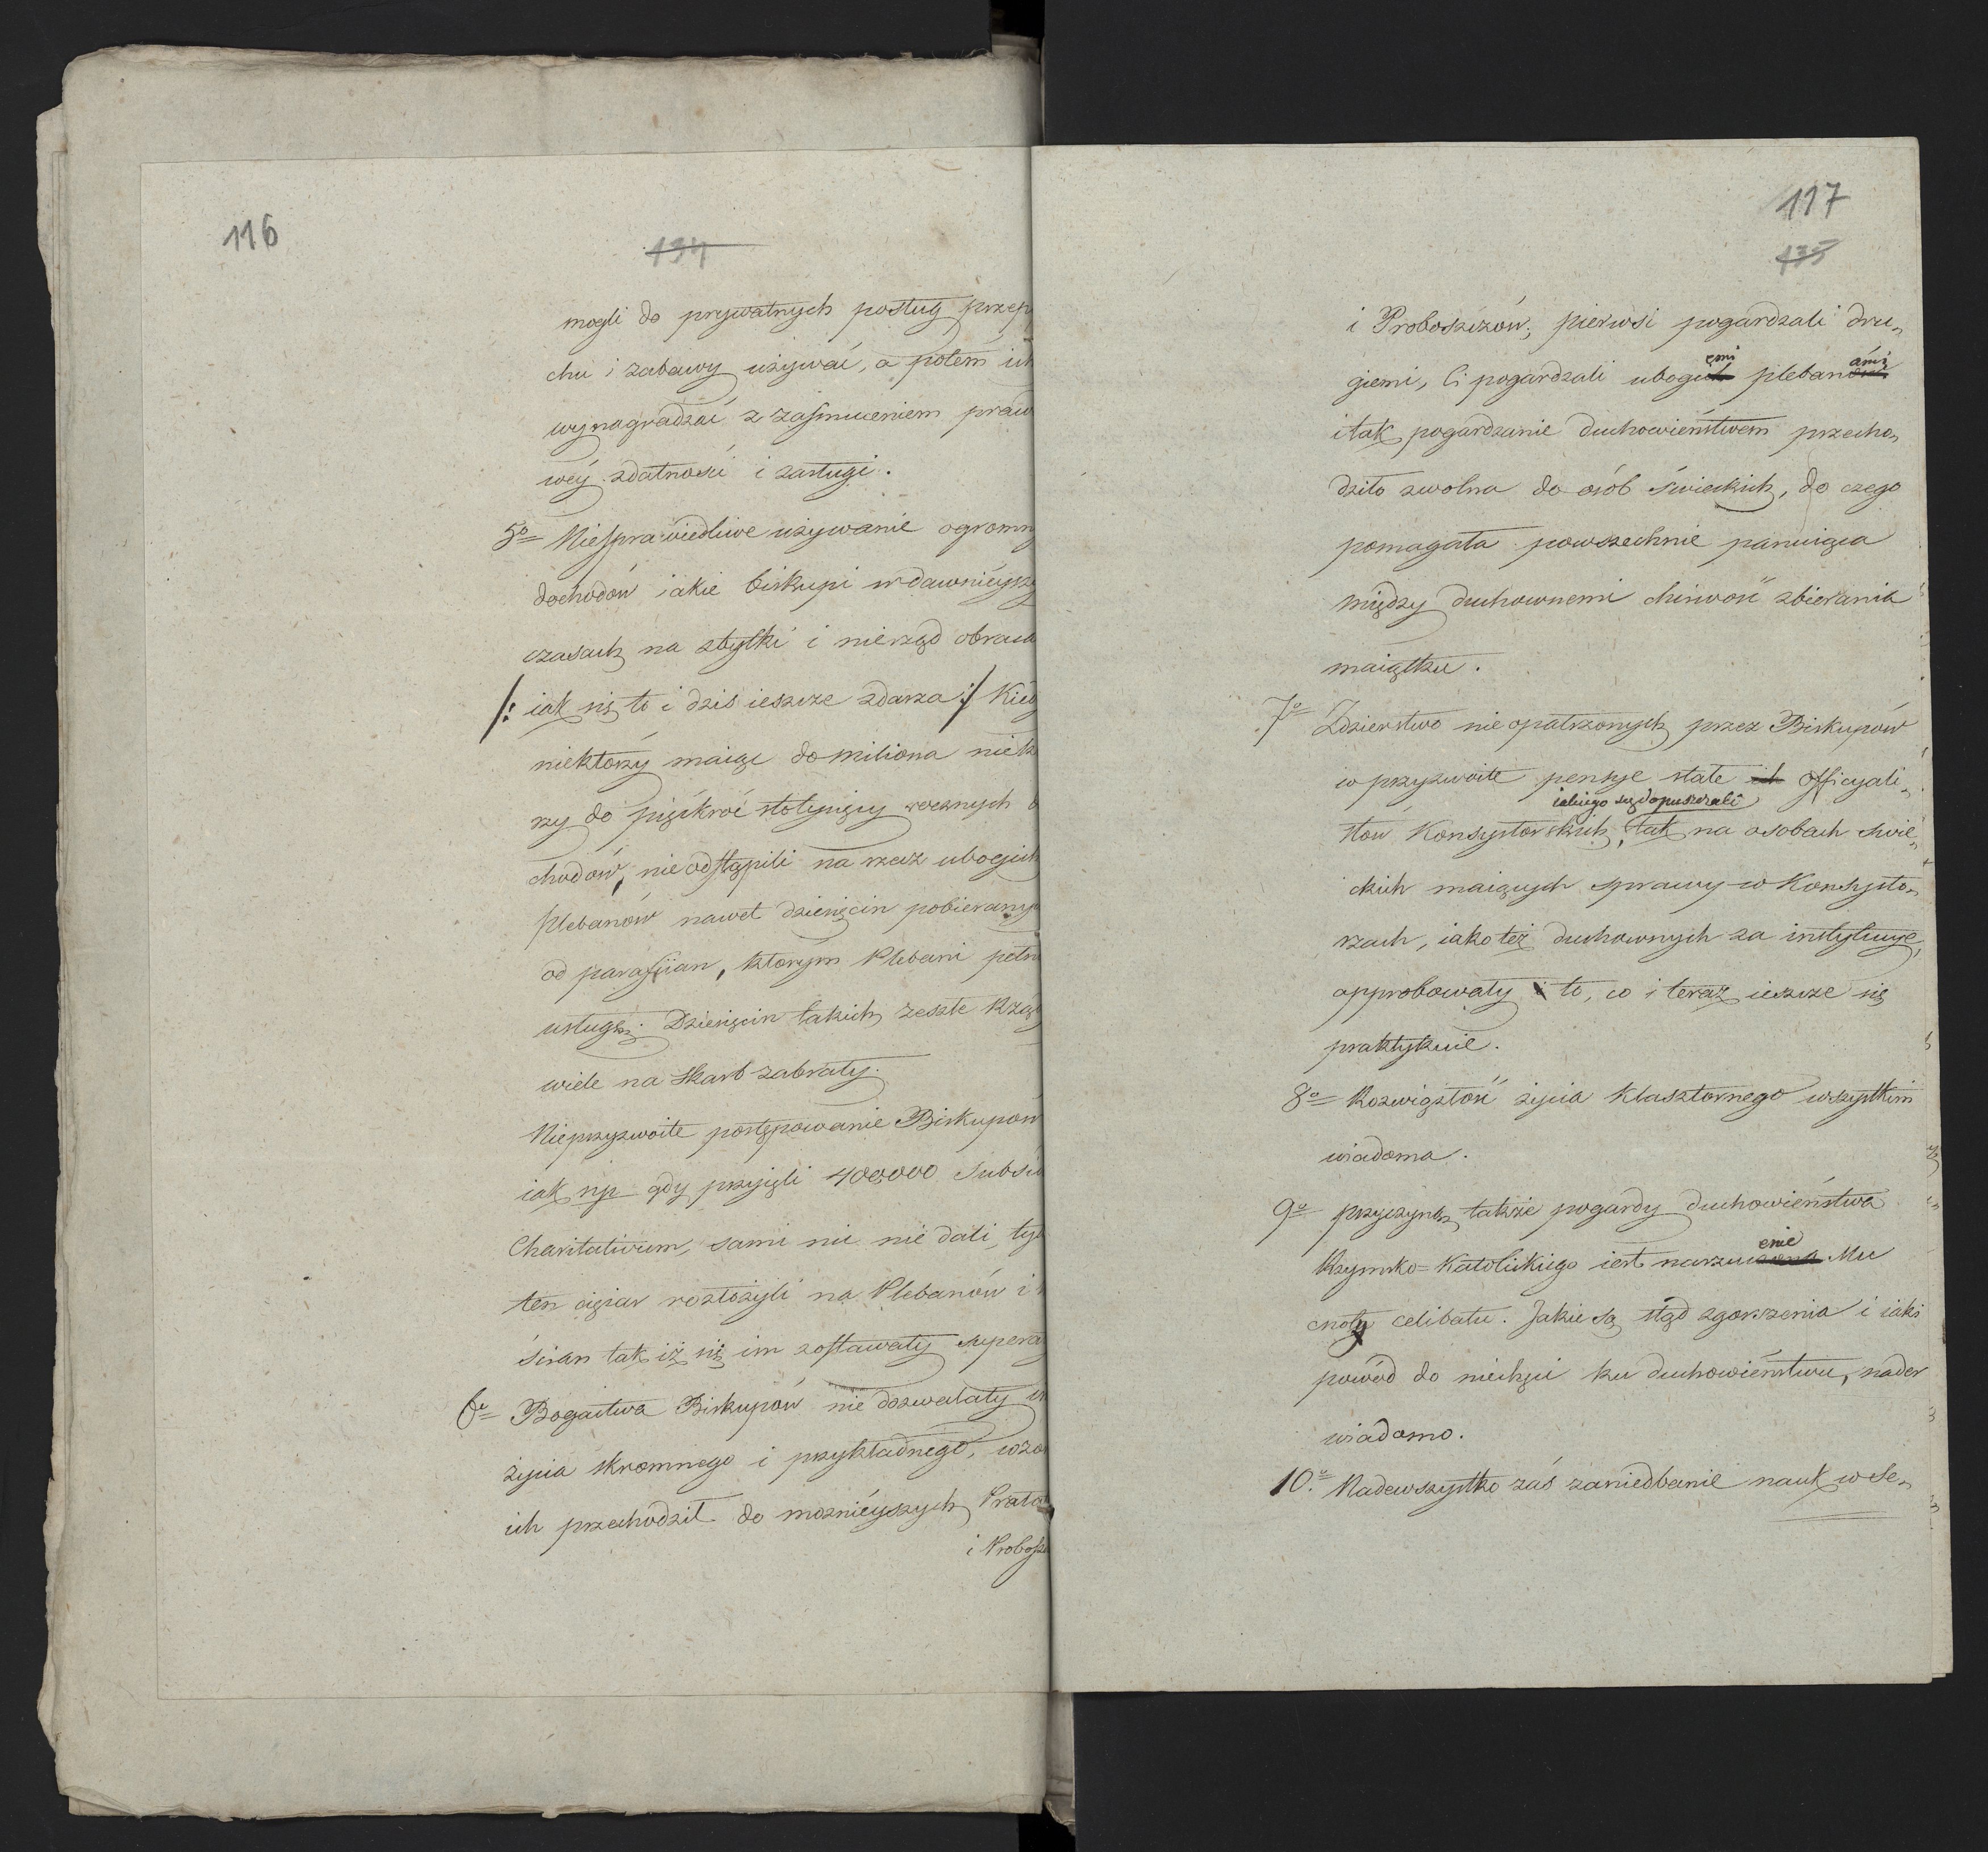 116
134
mogli do prywatnych posług przep
chu i zabawy używać, a potem ich
wynagradzać z zasmuceniem praw
wéy zdatności i zasługi.
5º Niesprawiedliwe używanie ogromn
dochodów iakie biskupi w dawnieyszy
czasach na zbytki i nierząd obraca
/: iak się to i dziś ieszcze zdarza :/ Kied
niektórzy maiąc do miliona niek
rzy do pięćkroć stotysięcy rocznych
chodów, nie odstąpili na rzecz ubogich
Plebanów nawet dziesięcin pobierany
od parafiian, którym Plebani pełni
usługę. Dziesięcin takich zeszłe Rząd
wiele na Skarb zabrały.
Nieprzyzwoite postępowanie Biskupów
iak np gdy przyięli 400,000 Subsid
Charitativum, sami nic nie dali, tyl
ten ciężar rozłożyli na Plebanów i
ścian tak iż się im zostawały supera
6º Bogactwa Biskupów nie dozwalały
życia skromnego i przykładnego, wzor
ich przechodził do możnieyszych Prała
i Probosz
117
135
i Proboszczów, pierwsi pogardzali dru„
giemi, Ci pogardzali ubogich emi plebanów ami
i tak pogardzanie duchowieństwem przecho„
dziło zwolna do osób świeckich, do czego
pomagała powszechnie panuiąca
między duchownemi chciwość zbierania
maiątku.
7º Zdzierstwo nie opatrzonych przez Biskupów
w przyzwoite pensye stałe ich Officyali„
iakiego się dopuszczali
stów Konsystorskich, tak na osobach świe„
ckich maiących sprawy w Konsysto„
rzach, iako też duchownych za instytucye,
approbowały i to, co i teraz ieszcze się
praktykuie.
8º Rozwiązłość życia klasztornego wszystkim
wiadoma.
9º przyczyną także pogardy duchowieństwa
enie
Rzymsko=Katolickiego iest narzucona Mu
cnoty celibatu. Jakie są stąd zgorszenia i iaki
powód do niechęci ku duchowieństwu, nader
wiadomo.
10.º Nadewszystko zaś zaniedbanie nauk w Se„